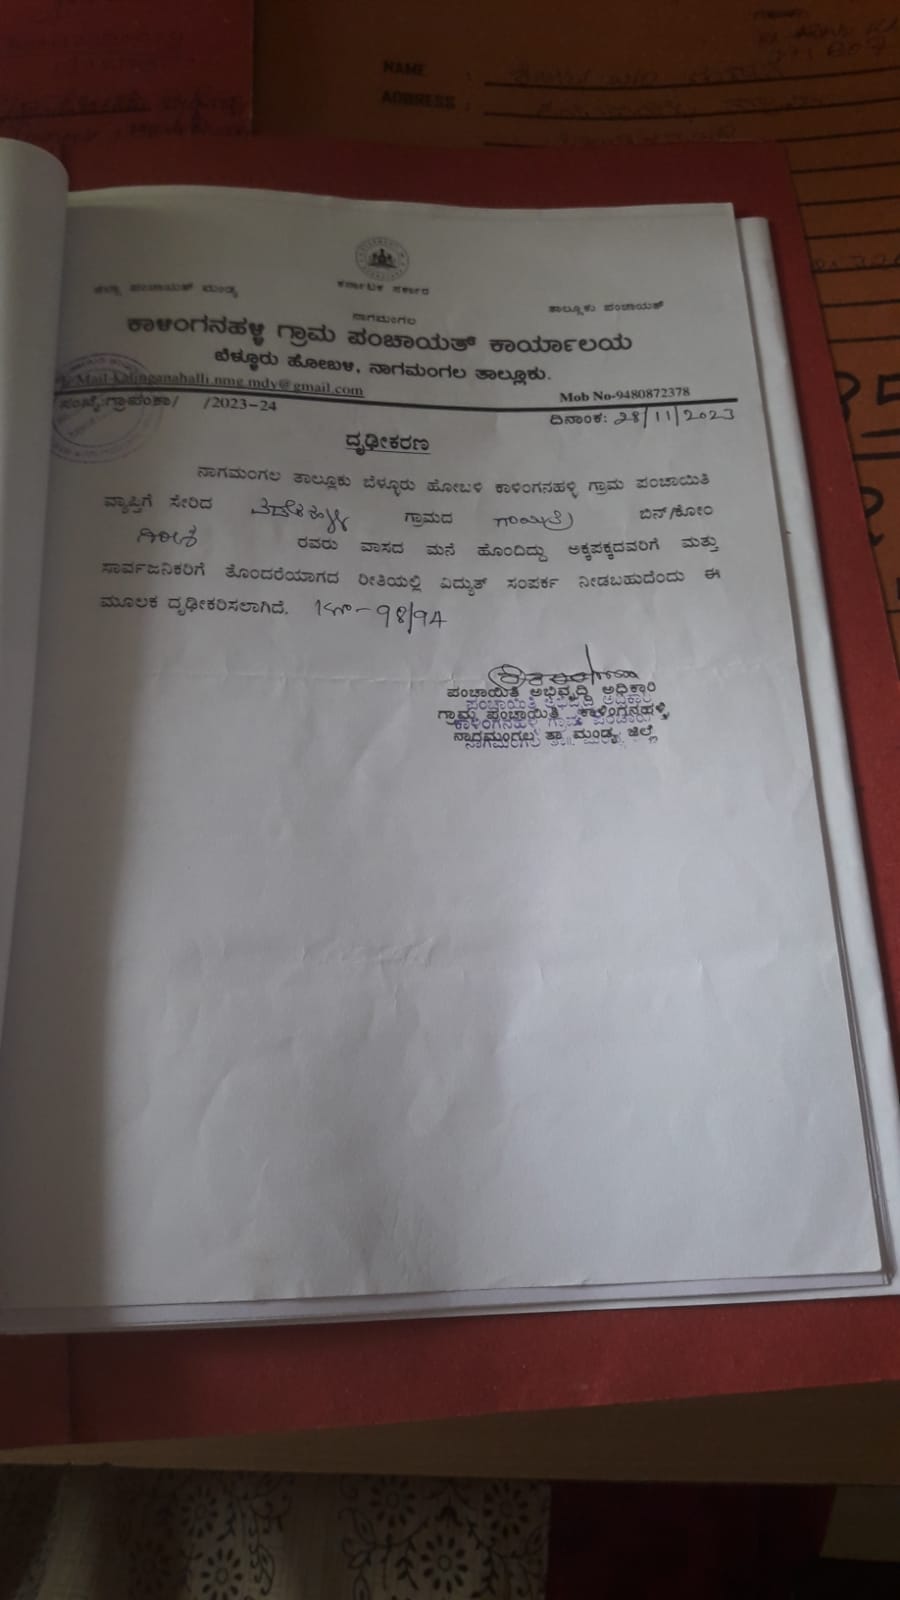 NAME :
ADDRESS :
ಜಿಲ್ಲಾ ಪಂಚಾಯತ್ ಮಂಡ್ಯ
ಕರ್ನಾಟಕ ಸರ್ಕಾರ
ತಾಲ್ಲೂಕು ಪಂಚಾಯತ್
ನಾಗಮಂಗಲ
ಕಾಳಿಂಗನಹಳ್ಳಿ ಗ್ರಾಮ ಪಂಚಾಯತ್ ಕಾರ್ಯಾಲಯ
ಬೆಳ್ಳೂರು ಹೋಬಳಿ, ನಾಗಮಂಗಲ ತಾಲ್ಲೂಕು.
E-Mail-kalinganahalli.nmg.mdy@gmail.com
Mob No-9480872378
ಸಂಖ್ಯೆ:ಗ್ರಾಪಂಕಾ/ /2023-24
ದಿನಾಂಕ: 28/11/2023
ದೃಢೀಕರಣ
ನಾಗಮಂಗಲ ತಾಲ್ಲೂಕು ಬೆಳ್ಳೂರು ಹೋಬಳಿ ಕಾಳಿಂಗನಹಳ್ಳಿ ಗ್ರಾಮ ಪಂಚಾಯಿತಿ
ವ್ಯಾಪ್ತಿಗೆ ಸೇರಿದ ಗ್ರಾಮದ ಗಾಯಿತ್ರಿ ಬಿನ್/ಕೋಂ
ಗಿರೀಶ ರವರು ವಾಸದ ಮನೆ ಹೊಂದಿದ್ದು ಅಕ್ಕಪಕ್ಕದವರಿಗೆ ಮತ್ತು
ಸಾರ್ವಜನಿಕರಿಗೆ ತೊಂದರೆಯಾಗದ ರೀತಿಯಲ್ಲಿ ವಿದ್ಯುತ್ ಸಂಪರ್ಕ ನೀಡಬಹುದೆಂದು ಈ
ಮೂಲಕ ದೃಢೀಕರಿಸಲಾಗಿದೆ. 98/94
ಪಂಚಾಯಿತಿ ಅಭಿವೃದ್ಧಿ ಅಧಿಕಾರಿ
ಗ್ರಾಮ ಪಂಚಾಯಿತಿ ಕಾಳಿಂಗನಹಳ್ಳಿ
ನಾಗಮಂಗಲ ತಾ ಮಂಡ್ಯ ಜಿಲ್ಲೆ